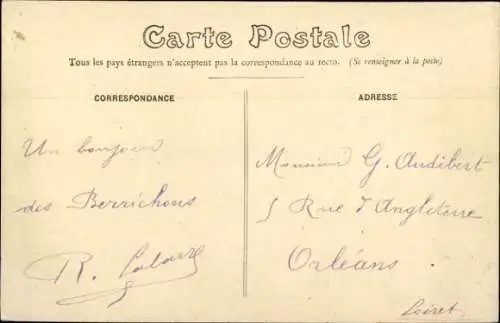 Carte Postale
Tous les pays étrangers n'acceptent pas la correspondance au recto. (Se renseigner à la poste)
CORRESPONDANCE
Un bonjour
des Berrichons
R.
ADRESSE
Monsieur G. Audibert
5 Rue d'Angleterre
Orléans
Loiret